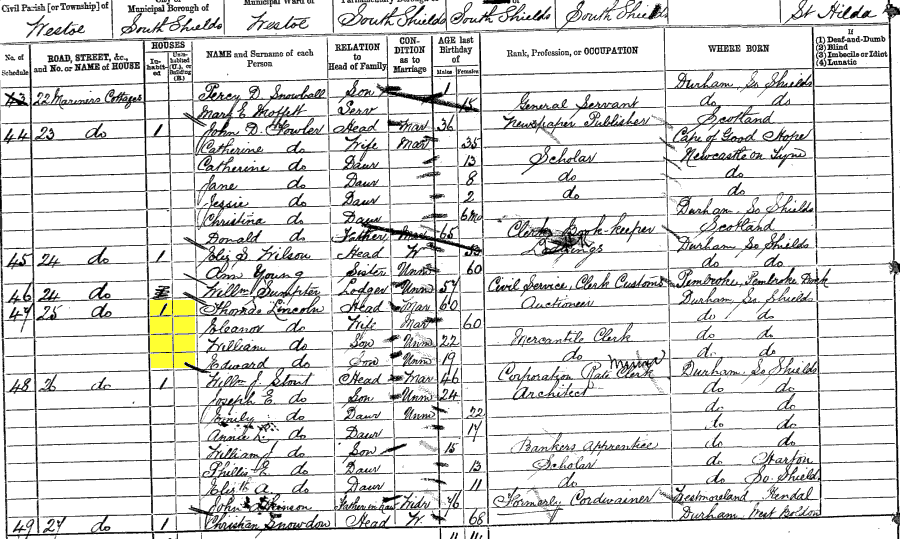 Civil Parish [or Township] of
Westoe
Municipal Borough of
South Shields
Municipal Ward of
Westoe
South Shields
South Shields
South Shields
St Hilda
No. of Schedule
ROAD, STREET, &c., and No. or NAME of HOUSE
HOUSES
In-habit-ed
Unin-habited (U.), or Building (B.)
NAME and Surname of each Person
RELATION to Head of Family
CON-DITION as to Marriage
AGE last Birthday of
Males
Females
Rank, Profession, or OCCUPATION
WHERE BORN
If
(1) Deaf-and-Dumb
(2) Blind
(3) Imbecile or Idiot
(4) Lunatic
43 22 Mariners Cottages Percy D. Snowball Son 1 Durham, So Shields
Mary E. Moffett Serv 15 General Servant do do
44 23 do 1 John D. Fowler Head Mar 36 Newspaper Publisher Scotland
Catherine do Wife Mar 35 Cape of Good Hope
Catherine do Daur 13 Scholar Newcastle on Tyne
Jane do Daur 8 do do
Jessie do Daur 2 do do
Christina do Daur 6mo Durham, So Shields
Donald do Father Mar 65 Clerk Book-keeper Scotland
45 24 do 1 Eliz D Wilson Head W Lodgings Durham, So Shields
Ann Young Sister Unm 60 do do
46 24 do Willm Sumpter Lodger Unm 57 Civil Service, Clerk Customs Pembroke, Pembroke Dock
47 25 do 1 Thomas Lincoln Head Mar 60 Auctioneer Durham, So Shields
Eleanor do Wife Mar 60 do do
William do Son Unm 22 Mercantile Clerk do do
Edward do Son Unm 19 do do do
48 26 do 1 Willm J. Stout Head Mar 46 Corporation Rate Clerk Durham, So Shields
Joseph E. do Son Unm 24 Architect do do
Emily do Daur Unm 22 do do
Annie R. do Daur 17 do do
William J do Son 15 Bankers Apprentice do do
Phillis E. do Daur 13 Scholar do Harton
Elizth A. do Daur 11 do do So. Shields
John Atkinson Father in law Widr 76 Formerly Cordwainer Westmoreland, Kendal
49 27 do 1 Christian Snowdon Head W 68 Durham, West Boldon